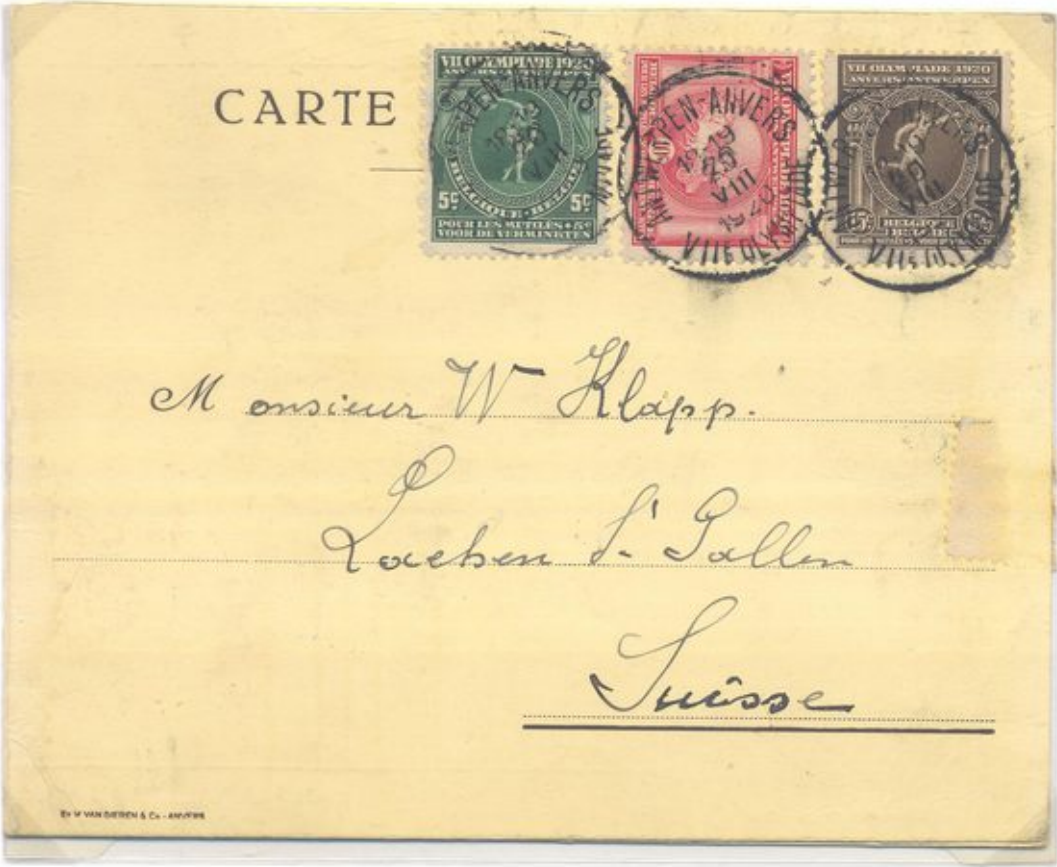 CARTE
VII OLYMPIADE 1920
ANVERS-ANTWERPEN
BELGIQUE·BELGIE
5c 5c
POUR LES MUTILÉS+5c
VOOR DE VERMINKTEN
PEN-ANVERS
VIII
ANTWERPEN-ANVERS
18-19
20
VIII
1920
VIIE OLYMPIADE
VII OLYMPIADE 1920
ANVERS-ANTWERPEN
BELGIQUE
ANVERS
Monsieur W Klapp.
Lachen St Gallen
Suisse
VAN DIEREN & Co - ANVERS